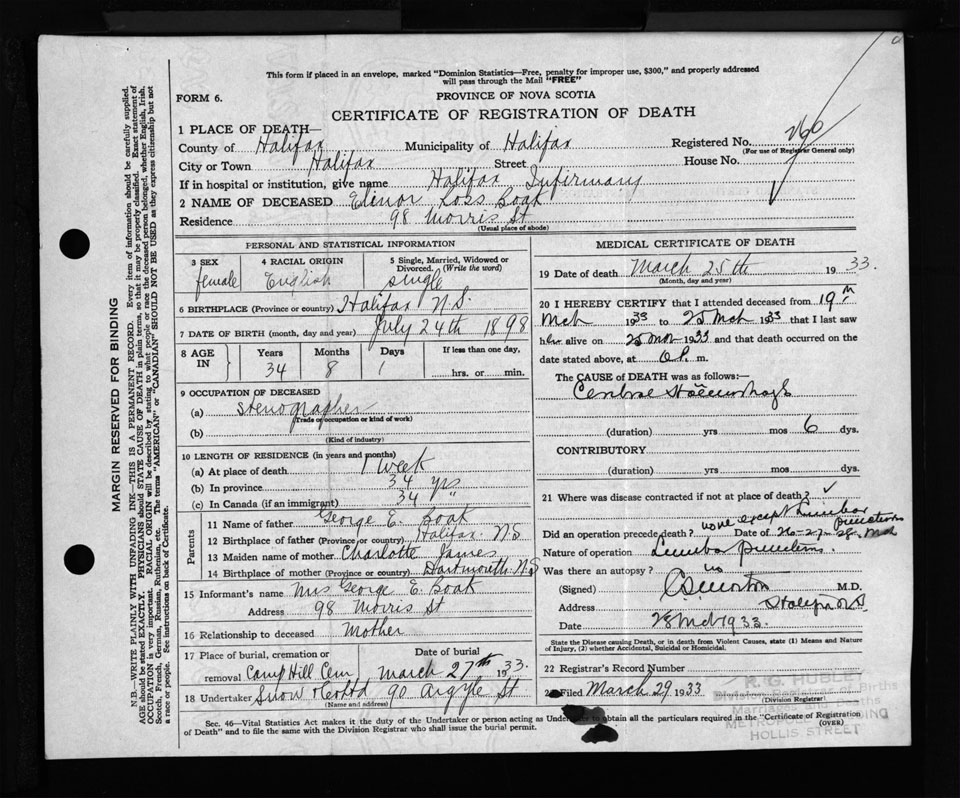 This form if placed in an envelope, marked "Dominion Statistics—Free, penalty for improper use, $300," and properly addressed
will pass through the Mail "FREE"
FORM 6.
PROVINCE OF NOVA SCOTIA
CERTIFICATE OF REGISTRATION OF DEATH
1 PLACE OF DEATH—
County of Halifax Municipality of Halifax Registered No. 260
(For use of Registrar General only)
City or Town Halifax Street House No.
If in hospital or institution, give name Halifax Infirmary
2 NAME OF DECEASED Elinor Ross Boak
Residence 98 Morris St
(Usual place of abode)
PERSONAL AND STATISTICAL INFORMATION
3 SEX 4 RACIAL ORIGIN 5 Single, Married, Widowed or
Divorced. (Write the word)
female English single
6 BIRTHPLACE (Province or country) Halifax N.S.
7 DATE OF BIRTH (month, day and year) July 24th 1898
8 AGE IN Years Months Days If less than one day,
34 8 1 hrs. or min.
9 OCCUPATION OF DECEASED
(a) Stenographer
(Trade or occupation or kind of work)
(b)
(Kind of industry)
10 LENGTH OF RESIDENCE (in years and months)
(a) At place of death 1 week
(b) In province 34 yrs
(c) In Canada (if an immigrant) 34 "
Parents
11 Name of father George E. Boak
12 Birthplace of father (Province or country) Halifax N.S
13 Maiden name of mother Charlotte James
14 Birthplace of mother (Province or country) Dartmouth N.S
15 Informant's name Mrs George E. Boak
Address 98 Morris St
16 Relationship to deceased Mother
17 Place of burial, cremation or Date of burial
removal Camp Hill Cem March 27th 1933.
18 Undertaker Snow & Co Ltd 90 Argyle St
(Name and address)
MEDICAL CERTIFICATE OF DEATH
19 Date of death March 25th 1933.
(Month, day and year)
20 I HEREBY CERTIFY that I attended deceased from 19th
Mch 1933 to 25 Mch 1933 that I last saw
her alive on 25 1933 and that death occurred on the
date stated above, at P. m.
The CAUSE OF DEATH was as follows:—
(duration) yrs mos 6 dys.
CONTRIBUTORY
(duration) yrs mos dys.
21 Where was disease contracted if not at place of death? ✓
Did an operation precede death? none except Lumbar punctures Date of 26-27-28 Mch
Nature of operation Lumbar punctures.
Was there an autopsy? no
(Signed) M.D.
Address Halifax N.S.
Date 28 Mch 1933.
State the Disease causing Death, or in death from Violent Causes, state (1) Means and Nature
of Injury, (2) whether Accidental, Suicidal or Homicidal.
22 Registrar's Record Number
Filed March 29 1933
(Division Registrar)
R. G. HUBLEY
Division Registrar of Births
Marriages and Deaths
METROPOLE BUILDING
HOLLIS STREET
Sec. 46—Vital Statistics Act makes it the duty of the Undertaker or person acting as Undertaker to obtain all the particulars required in the "Certificate of Registration
of Death" and to file the same with the Division Registrar who shall issue the burial permit.
(OVER)
MARGIN RESERVED FOR BINDING
N.B.—WRITE PLAINLY WITH UNFADING INK—THIS IS A PERMANENT RECORD. Every item of information should be carefully supplied.
AGE should be stated EXACTLY. PHYSICIANS should STATE CAUSE OF DEATH in plain terms, so that it may be properly classified. Exact statement of
OCCUPATION is very important. RACIAL ORIGIN will be described by stating to what people or race the deceased person belonged, whether English, Irish,
Scotch, French, German, Russian, Ruthenian, etc. The terms "AMERICAN" or "CANADIAN" SHOULD NOT BE USED as they express citizenship but not
a race or people. See instructions on back of Certificate.